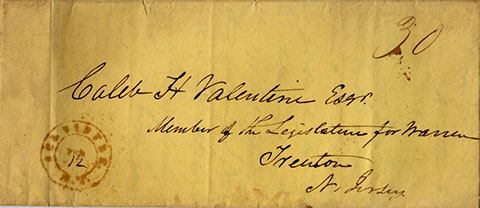 30
Caleb H Valentine Esqr.
Member of the Legislature for Warren
Trenton
N. Jersey
12